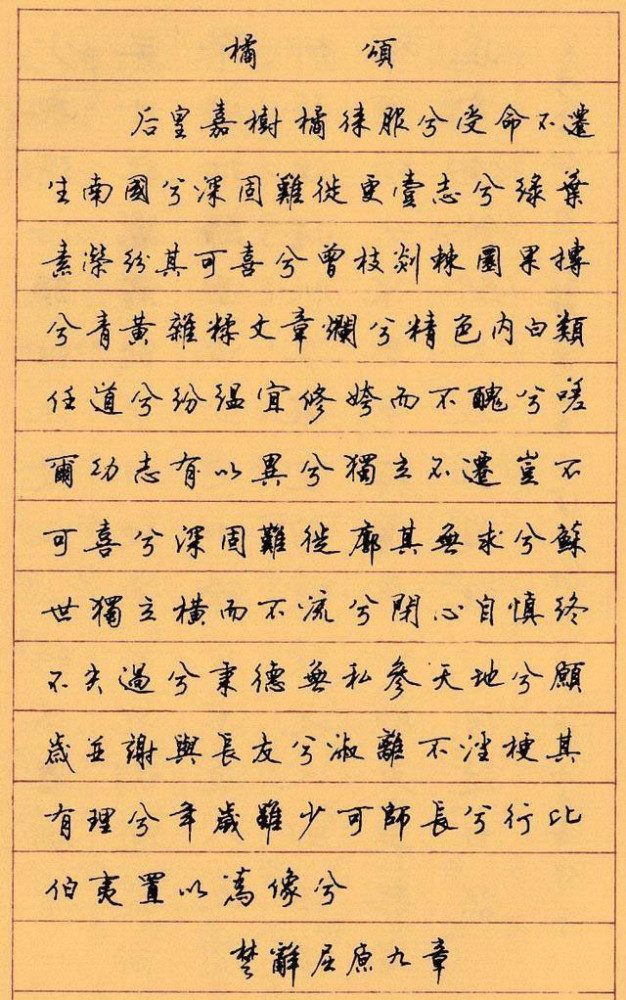 橘頌
后皇嘉樹橘徠服兮受命不遷
生南國兮深固難徙更壹志兮綠葉
素榮紛其可喜兮曾枝剡棘圓果摶
兮青黃雜糅文章爛兮精色內白類
任道兮紛緼宜修姱而不醜兮嗟
爾幼志有以異兮獨立不遷豈不
可喜兮深固難徙廓其無求兮蘇
世獨立橫而不流兮閉心自慎終
不失過兮秉德無私參天地兮願
歲並謝與長友兮淑離不淫梗其
有理兮年歲雖少可師長兮行比
伯夷置以為像兮
楚辭屈原九章